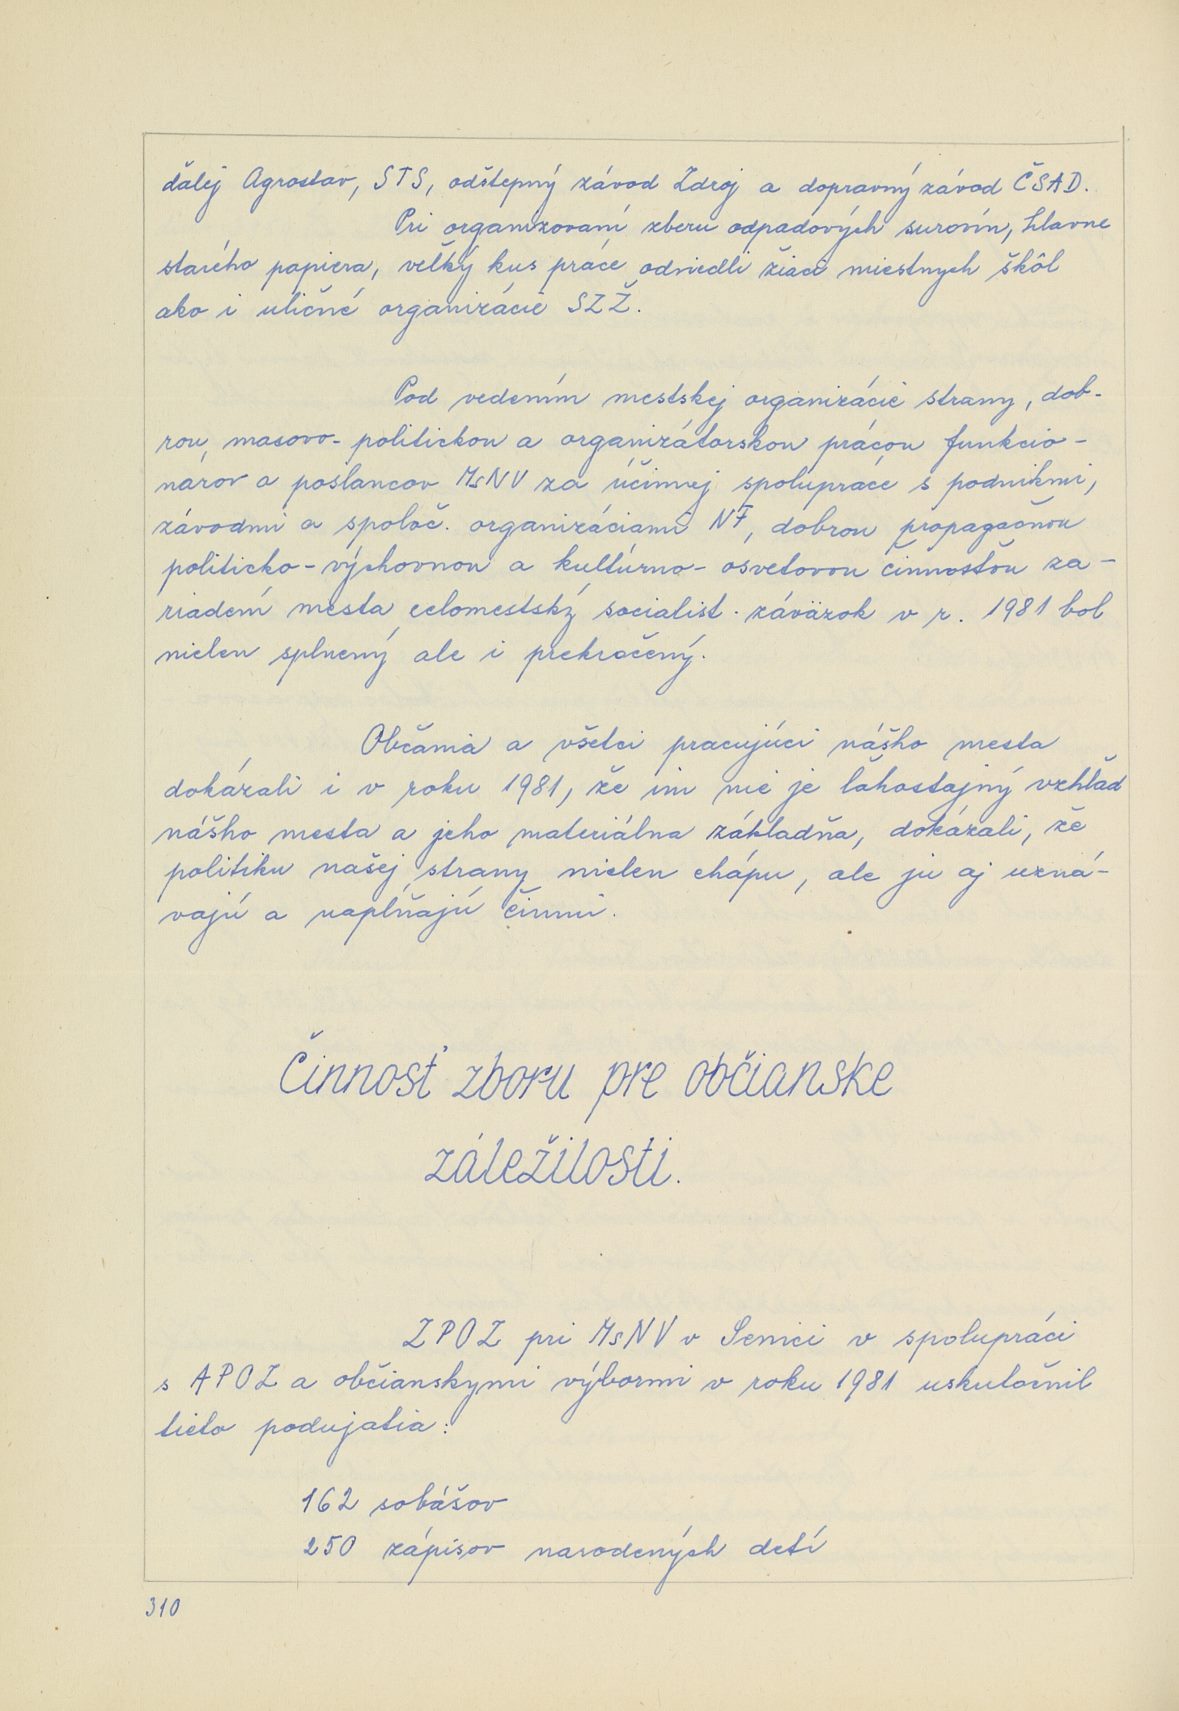 ďalej Agrostav, STS, odštepný závod Zdroj a dopravný závod ČSAD.
Pri organizovaní zberu odpadových surovín, hlavne
starého papiera, veľký kus práce odviedli žiaci miestnych škôl
ako i uličné organizácie SZŽ.
Pod vedením mestskej organizácie strany, dob-
rou masovo-politickou a organizátorskou prácou funkcio-
nárov a poslancov MsNV za účinnej spolupráce s podnikmi,
závodmi a spoloč. organizáciami NF, dobrou propagačnou
politicko-výchovnou a kultúrno-osvetovou činnosťou za-
riadení mesta celomestský socialist. záväzok v r. 1981 bol
nielen splnený ale i prekročený.
Občania a všetci pracujúci nášho mesta
dokázali i v roku 1981, že im nie je ľahostajný vzhľad
nášho mesta a jeho materiálna základňa, dokázali, že
politiku našej strany nielen chápu, ale ju aj uzná-
vajú a naplňajú činmi.
Činnosť zboru pre občianske
záležitosti.
ZPOZ pri MsNV v Senici v spolupráci
s APOZ a občianskymi výbormi v roku 1981 uskutočnil
tieto podujatia:
162 sobášov
250 zápisov narodených detí
310